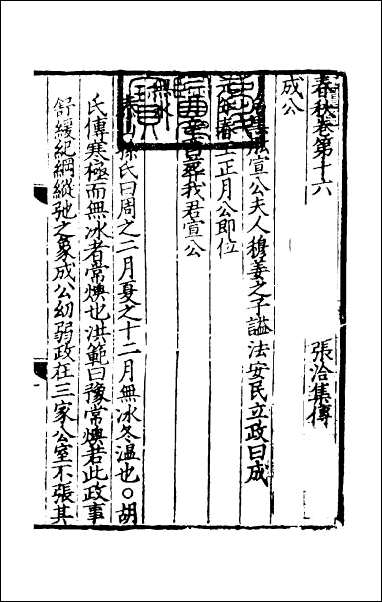 春秋卷第十六 張洽集傳
成公
肱宣公夫人穆姜之子諡法安民立政曰成
春王正月公即位
酉葬我君宣公
無冰
泰山孫氏曰周之二月夏之十二月無冰冬温也○胡
氏傳寒極而無冰者常燠也洪範曰豫常燠若此政事
舒緩紀綱縱弛之象成公幼弱政在三家公室不張其